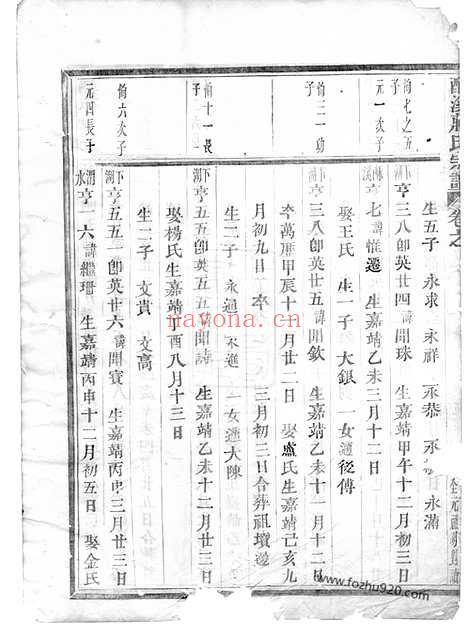 生五子 永求 永祥 永恭 永滿
尙七之五子
下湖亨三八卽英廿四諱開珠 生嘉靖甲午十二月初三日
元一次子
亨七諱惟遷 生嘉靖乙未三月十二日
娶王氏 生一子 大銀 一女適後傅
尙三一幼子
下湖亨三八卽英廿五諱開欽 生嘉靖乙未十一月十二日
卒萬曆甲辰十一月廿二日 娶盧氏生嘉靖己亥九
月初九日 卒 三月初三日合葬祖墳邊
生二子 永通 永進 一女適大陳
尙十一長子
下湖亨五五卽英五五諱開詩 生嘉靖乙未十二月廿五日
娶楊氏生嘉靖丁酉八月十三日
生二子 文貴 文高
尙六次子
下湖亨五五一卽英廿六諱開賓 生嘉靖丙申三月廿三日
元四長子
渭水亨一六諱繼珊 生嘉靖丙申十二月初五日 娶金氏
nayona.cn
www.fozhu920.com